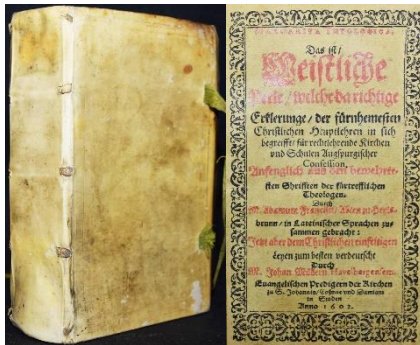 MARGARITA THEOLOGICA,
Das ist/
Geistliche
Perle/welche da richtige
Erklerunge/der fürnhemesten
Christlichen Hauptlehren in sich
begreifft/für rechtlehrende Kirchen
und Schulen Augspurgischer
Confession,
Anfenglich aus den bewehrte-
sten Shrifften der fürtrefflichen
Theologen.
Durch
M. Adamum Francisci/Abten zu Heyls-
brunn/in Lateinischer Sprachen zu-
sammen gebracht:
Jetzt aber dem Christlichen einfeltigen
Leyen zum besten verdeutscht
Durch
M. Johan Havelbergensem.
Evangelischen Predigern der Kirchen
zu S. Johannis/Cosmae und Damiani
in Staden
Anno 1602.